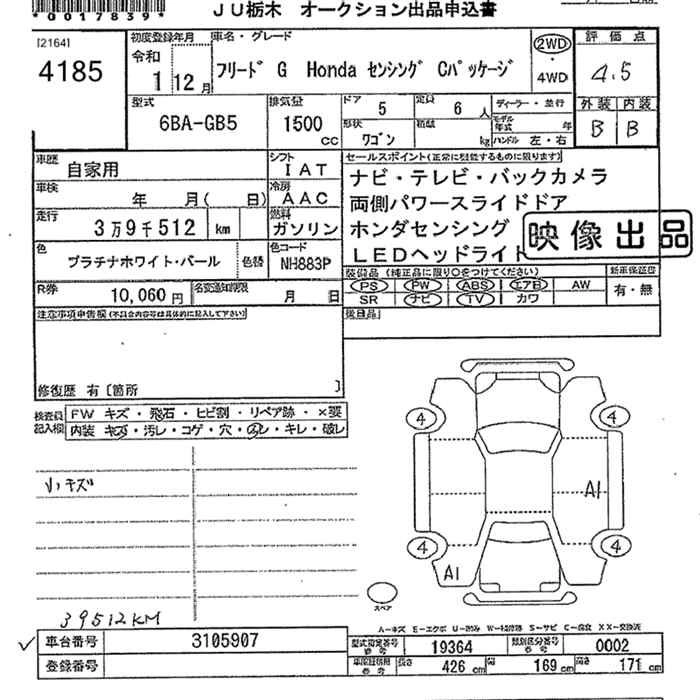 *0017839*
JU栃木 オークション出品申込書
[2164]
4185
初度登録年月
令和
1 12月
車名・グレード
フリード G Honda センシング Cパッケージ
2WD
・
4WD
評価点
4.5
外装 内装
B B
型式
6BA-GB5
排気量
1500
CC
ドア
5
定員
6 人
ディーラー・並行
形状
ワゴン
積載
kg
モデル年式 年
ハンドル 左・右
車歴
自家用
シフト
IAT
車検
年 月( 日)
冷房
AAC
走行
3万9千512 km
燃料
ガソリン
色
プラチナホワイト・パール
色替
色コード
NH883P
R券
10,060円
名変通知期限
月 日
セールスポイント(正常に機能するものに限ります)
ナビ・テレビ・バックカメラ
両側パワースライドドア
ホンダセンシング
LEDヘッドライト
映像出品
装備品 (純正品に限り○をつけてください)
PS PW ABS エアB AW
SR ナビ TV カワ
新車保証書
有・無
後日品
注意事項申告欄(不具合内容等は具体的に記入して下さい)
修復歴 有[箇所 ]
検査員記入欄
FW キズ・飛石・ヒビ割・リペア跡・×要
内装 キズ・汚レ・コゲ・穴・スレ・キレ・破レ
小キズ
39512KM
4
4
A1
4
4
A1
スペア
A-キズ E-エクボ U-凹み W-補修跡 S-サビ C-腐食 XX-交換済
車台番号
3105907
登録番号
型式指定番号
参考
19364
類別区分番号
参考
0002
車検証積用
参考
長さ
426 cm
幅
169 cm
高さ
171 cm